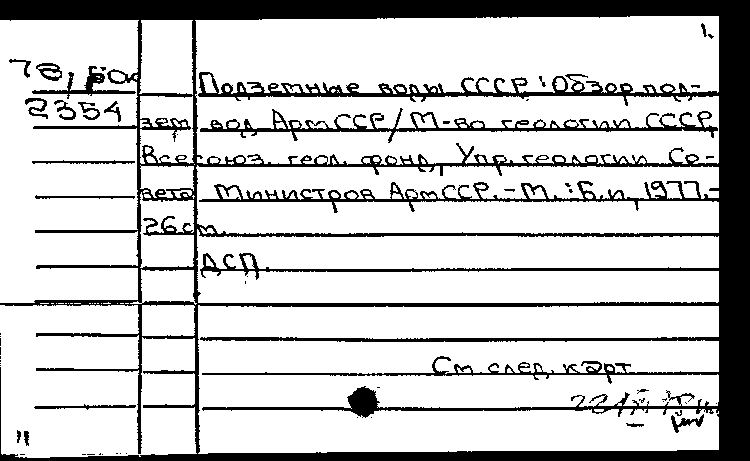 1.
78, БОк
2354
Подземные воды СССР : Обзор под-
зем. вод АрмССР / М-во геологии СССР,
Всесоюз. геол. фонд, Упр. геологии Со-
вета Министров АрмССР. - М. : Б.и., 1977. -
26 см.
ДСП.
См. след. карт